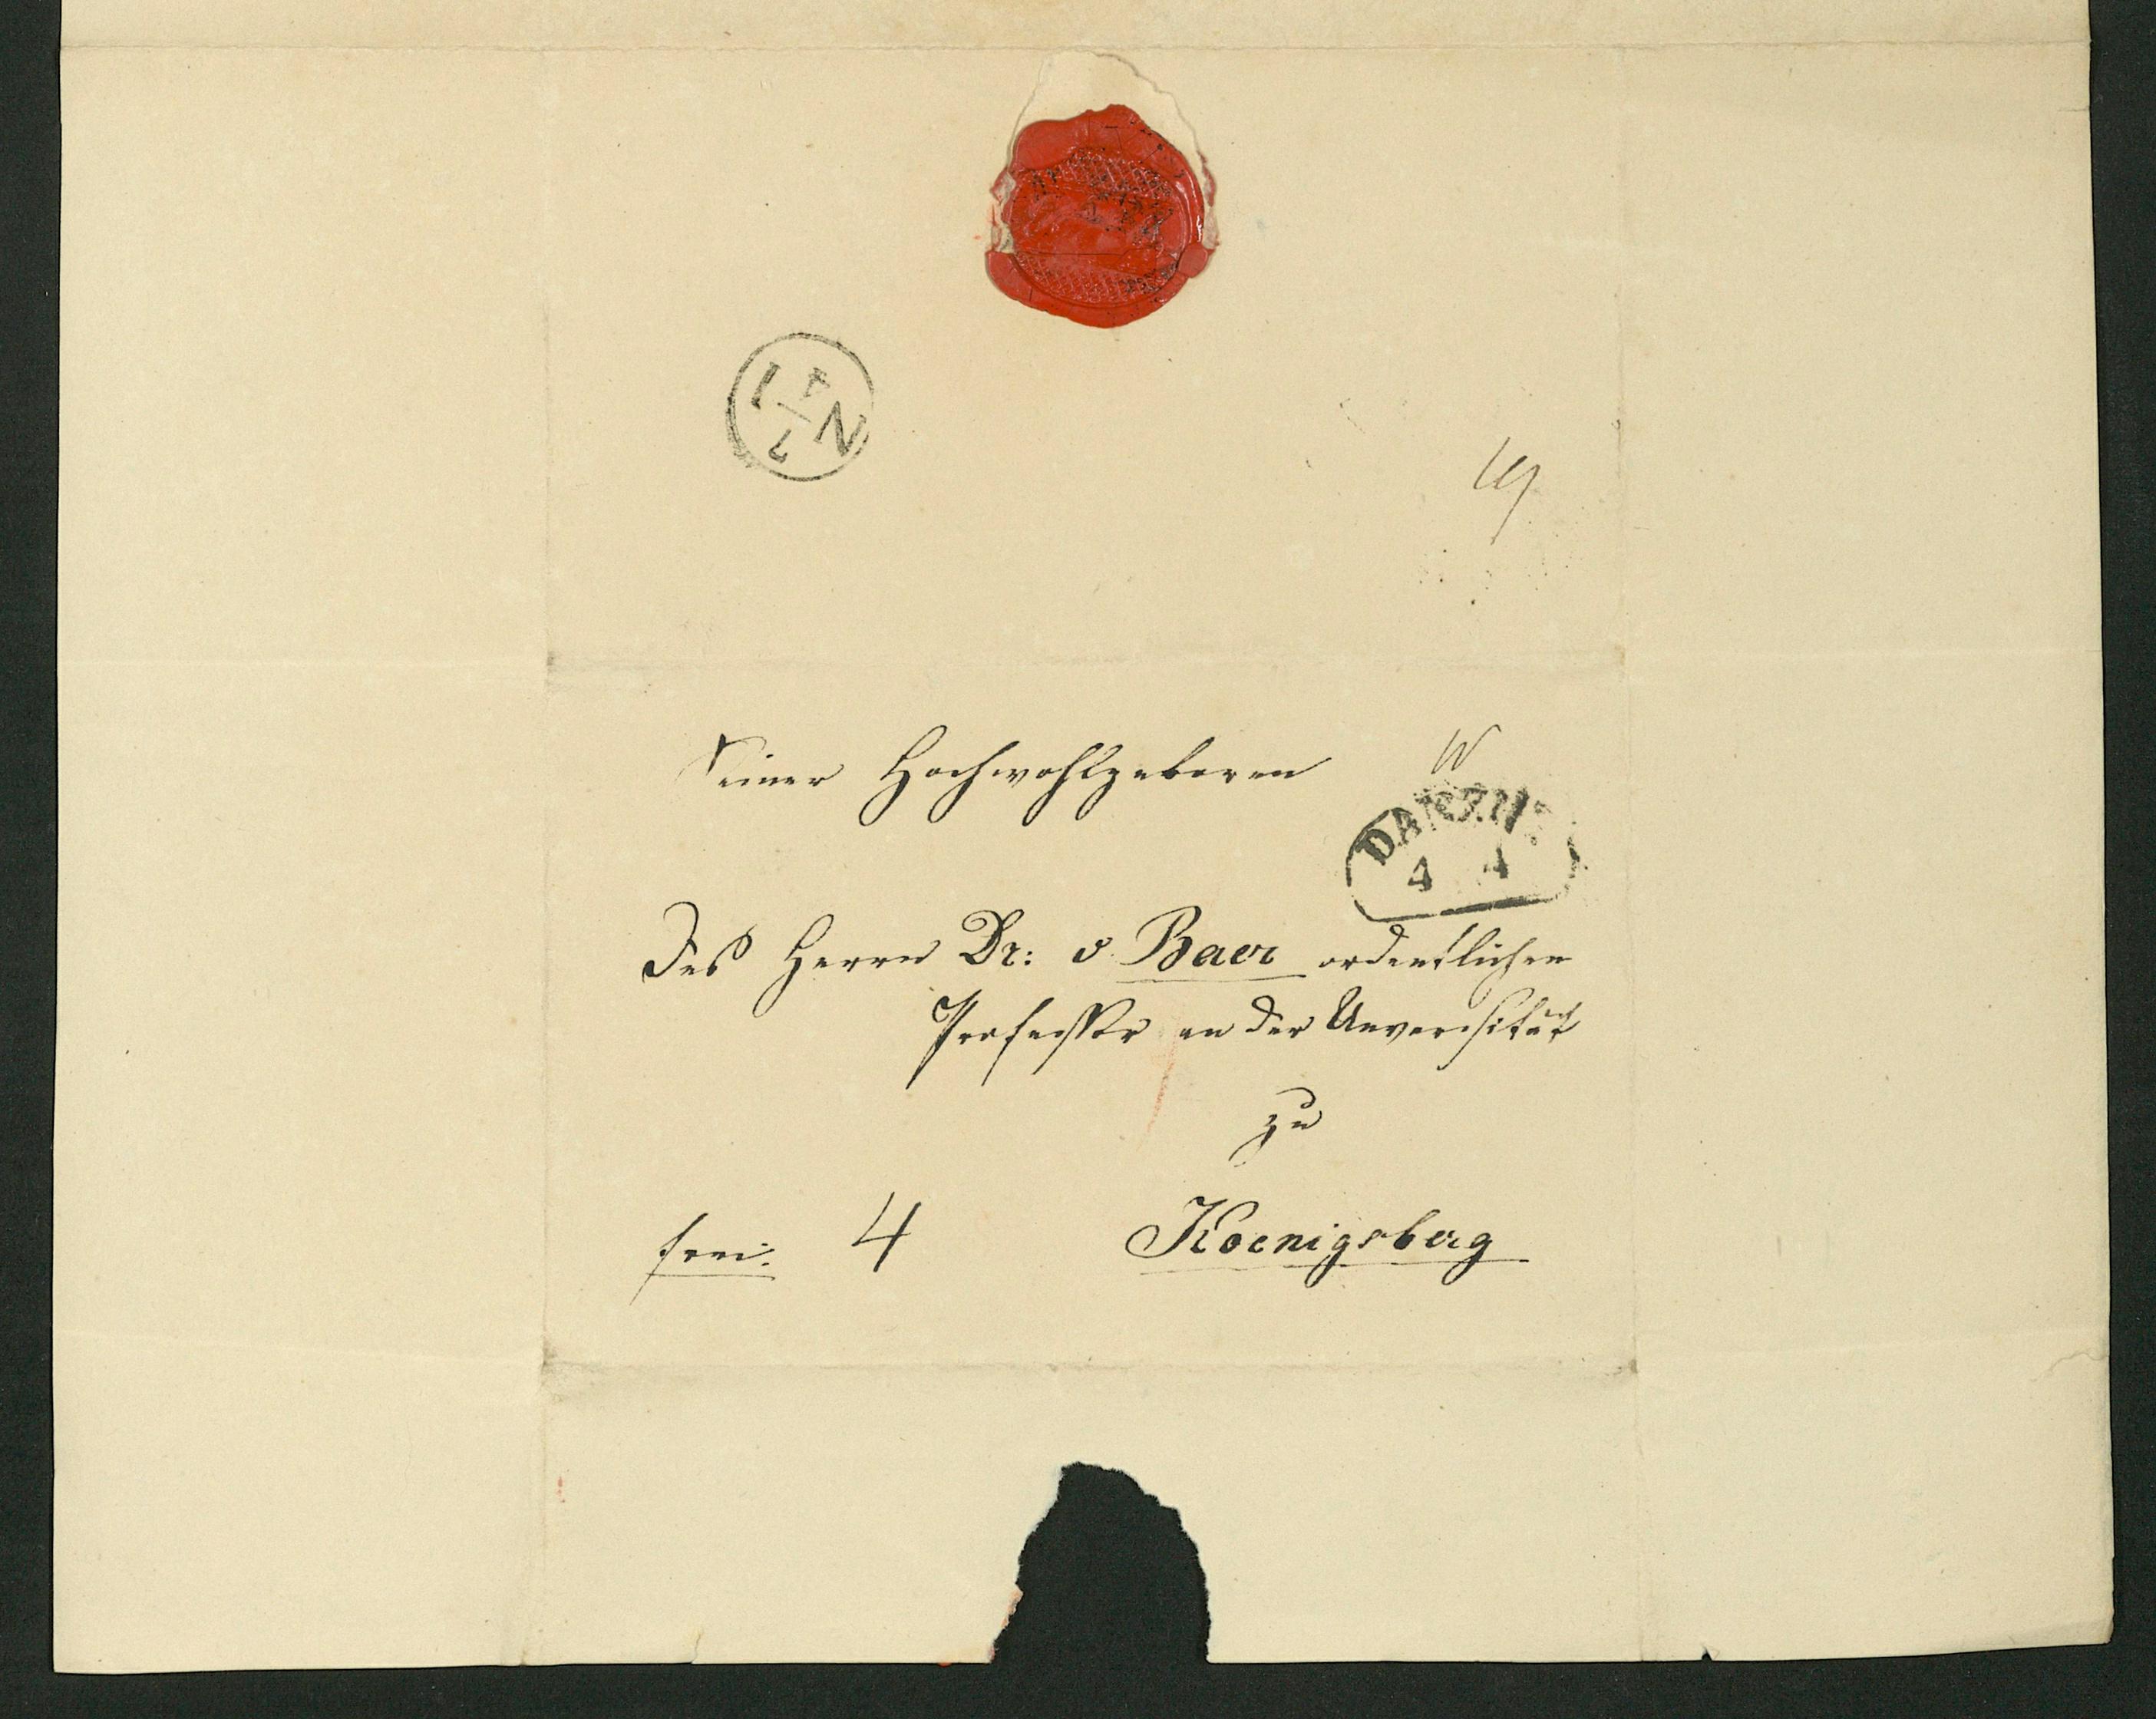 N 1
4
7
Seiner Hochwohlgeboren
DANZIG
4 4
des Herrn Dr: v. Baer ordentlichen
Professor an der Unversität
zu
frei. 4 Koenigsberg